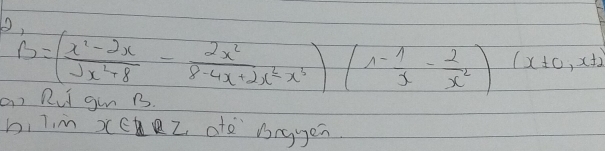 2,
B = (x² - 2x / 2x² + 8 - 2x² / 8 - 4x + 2x² - x³) (1 - 1/x - 2/x²) (x ≠ 0, x ≠ 2)
a, Rút gọn B.
b, Tìm x ∈ Z, để B nguyên.